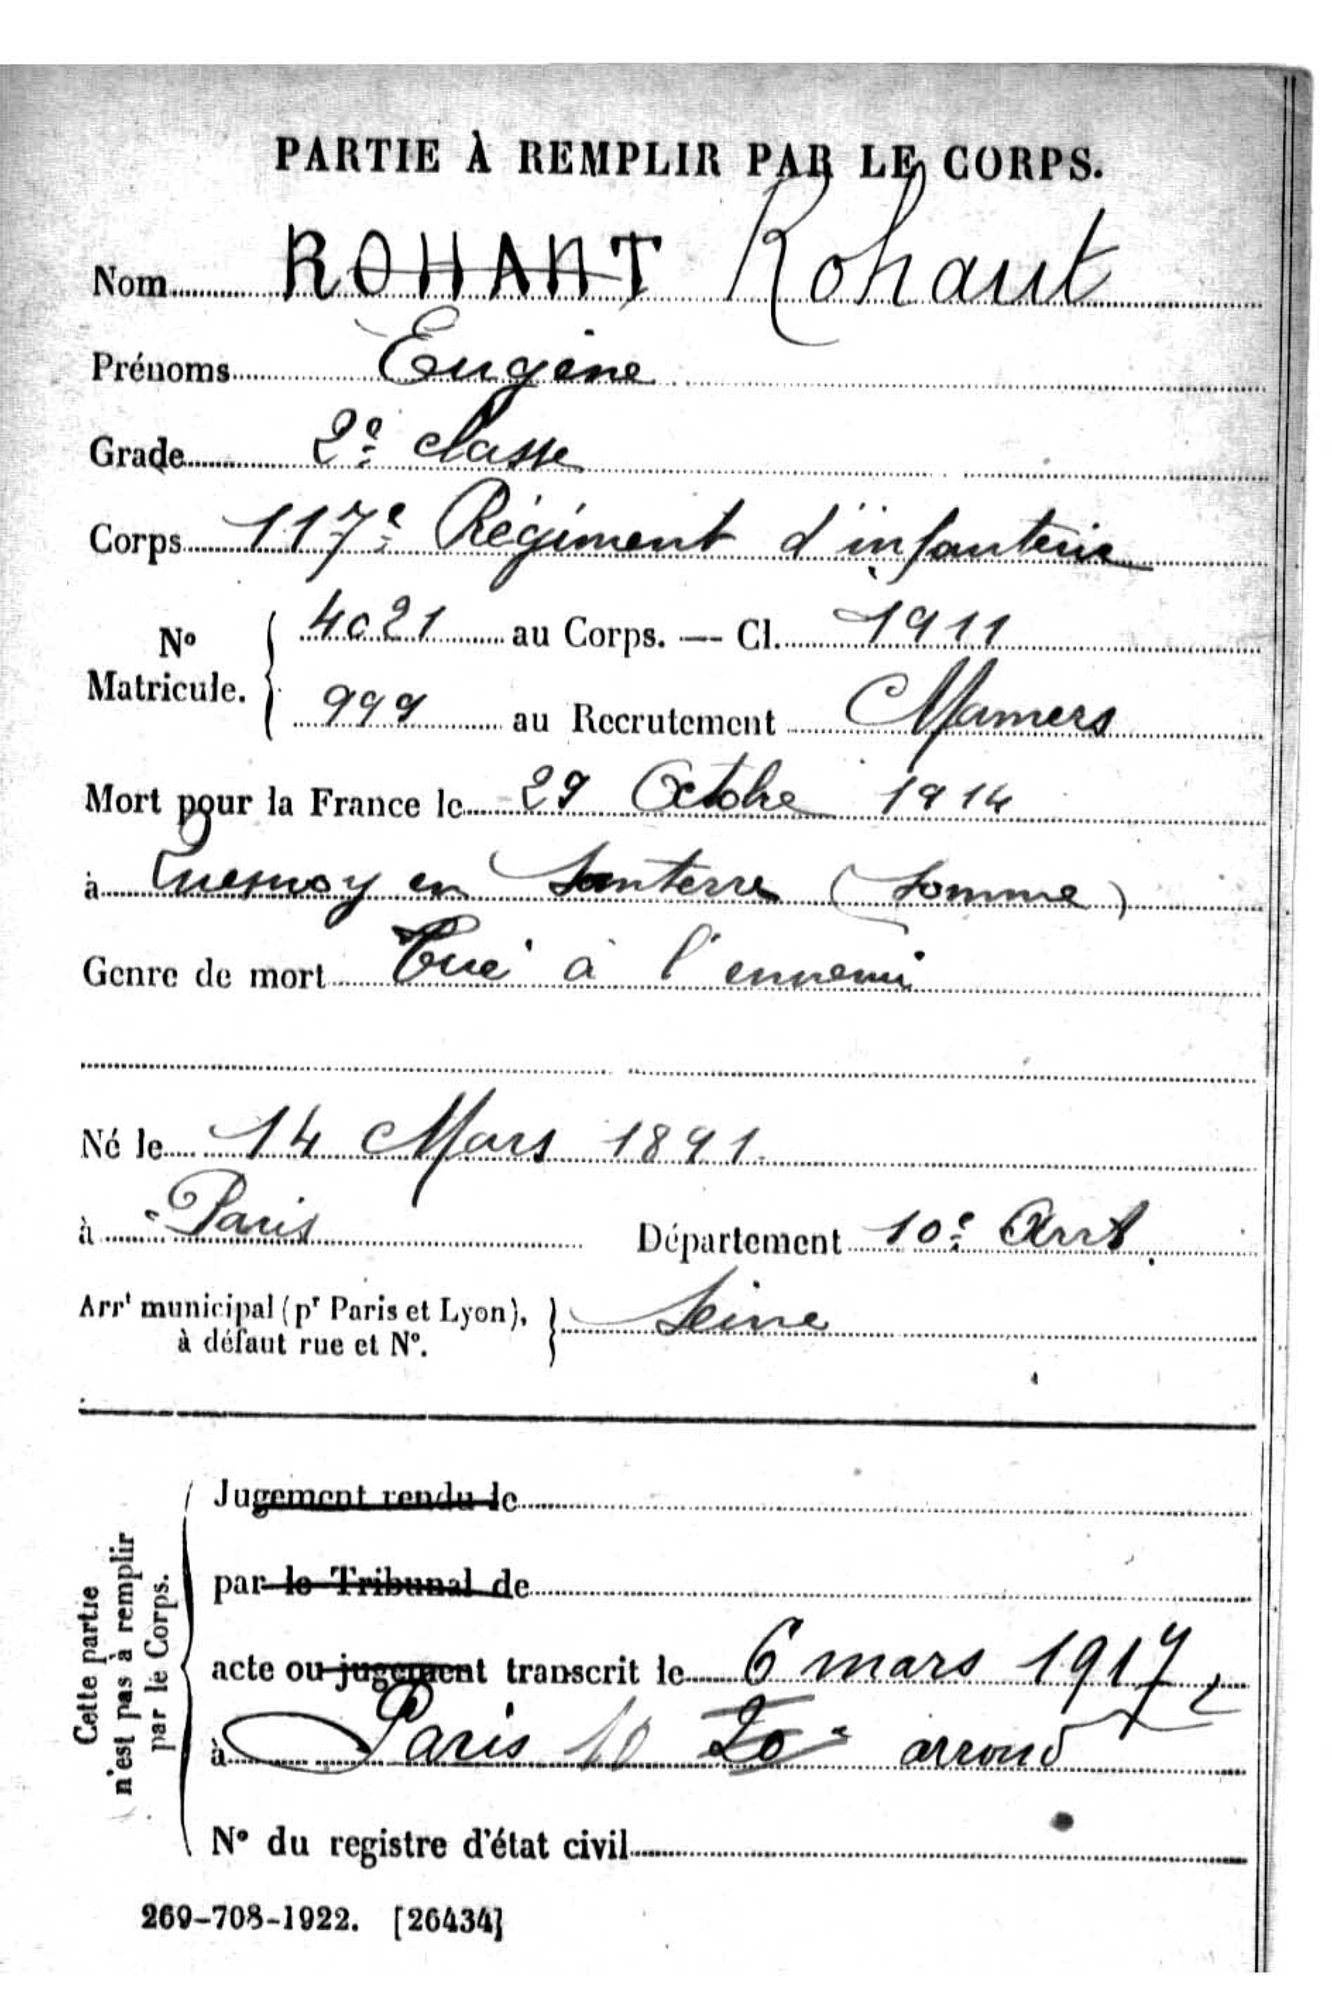 PARTIE À REMPLIR PAR LE CORPS.
Nom ROHANT Rohaut
Prénoms Eugène
Grade 2e classe
Corps 117e Régiment d'infanterie
No Matricule. 4021 au Corps. — Cl. 1911
999 au Recrutement Mamers
Mort pour la France le 29 Octobre 1914
à Quesnoy en Santerre (Somme)
Genre de mort Tué à l'ennemi
Né le 14 Mars 1891.
à Paris Département 10e Arrt.
Arrt municipal (pr Paris et Lyon), à défaut rue et No. Seine
Cette partie n'est pas à remplir par le Corps.
Jugement rendu le
par le Tribunal de
acte ou jugement transcrit le 6 mars 1917
à Paris 10 20e arrond
No du registre d'état civil
269-708-1922. [26434]